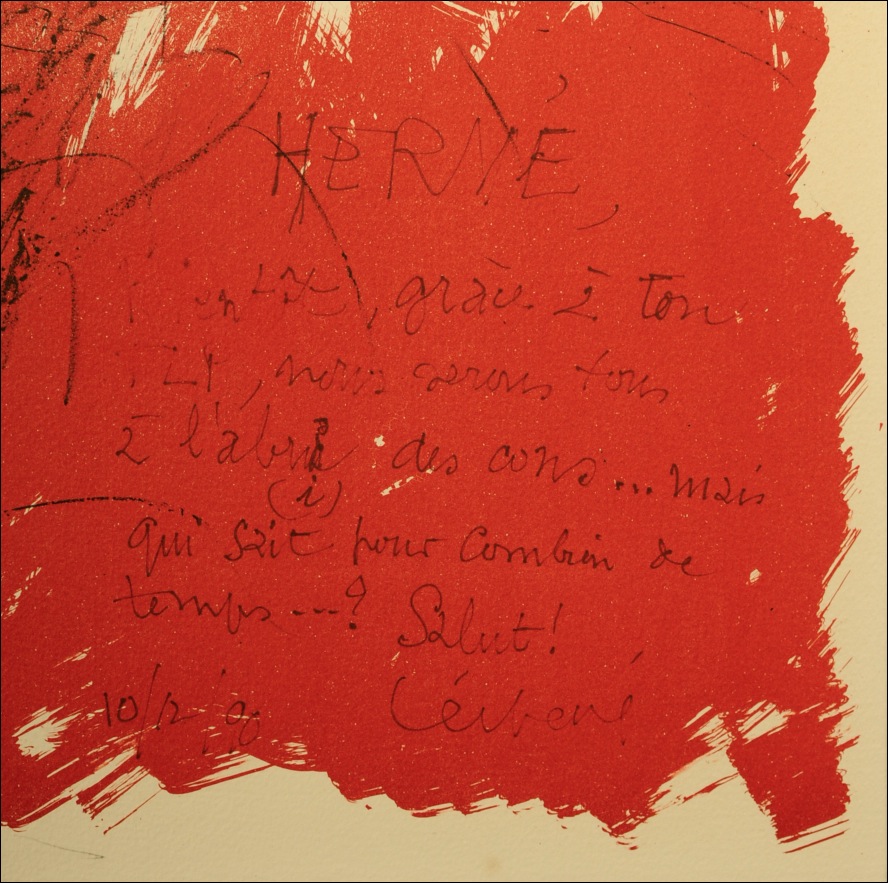 HERVÉ,
, grâce à ton
, nous serons tous
à l'abri des cons... mais
(i)
qui sait pour combien de
temps...? Salut!
10/12/90